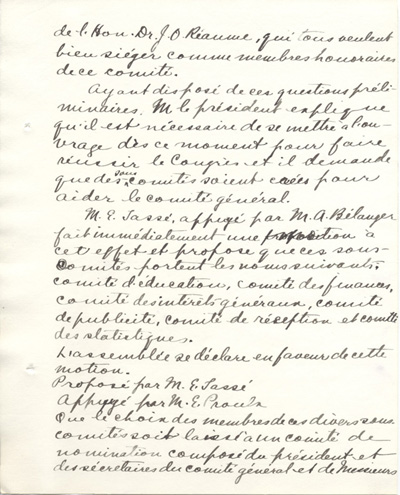 de l'Hon. Dr. J. O. Réaume, qui tous veulent
bien siéger comme membres honoraires
de ce comité.
Ayant disposé de ces questions préli-
minaires, M. le président explique
qu'il est nécessaire de se mettre à l'ou-
vrage dès ce moment pour faire
réussir le Congrès et il demande
que des sous comités soient créés pour
aider le comité général.
M. E. Tassé, appuyé par M. A. Bélanger
fait immédiatement une proposition à
cet effet et propose que ces sous-
comités portent les noms suivants;
comité d'éducation, comité des finances,
comité des intérêts généraux, comité
de publicité, comité de réception et comité
des statistiques.
L'assemblée se déclare en faveur de cette
motion.
Proposé par M. E. Tassé
Appuyé par M. E. Proulx
Que le choix des membres de ces divers sous
comités soit laissé à un comité de
nomination composé du président et
des secrétaires du comité général et de Messieurs